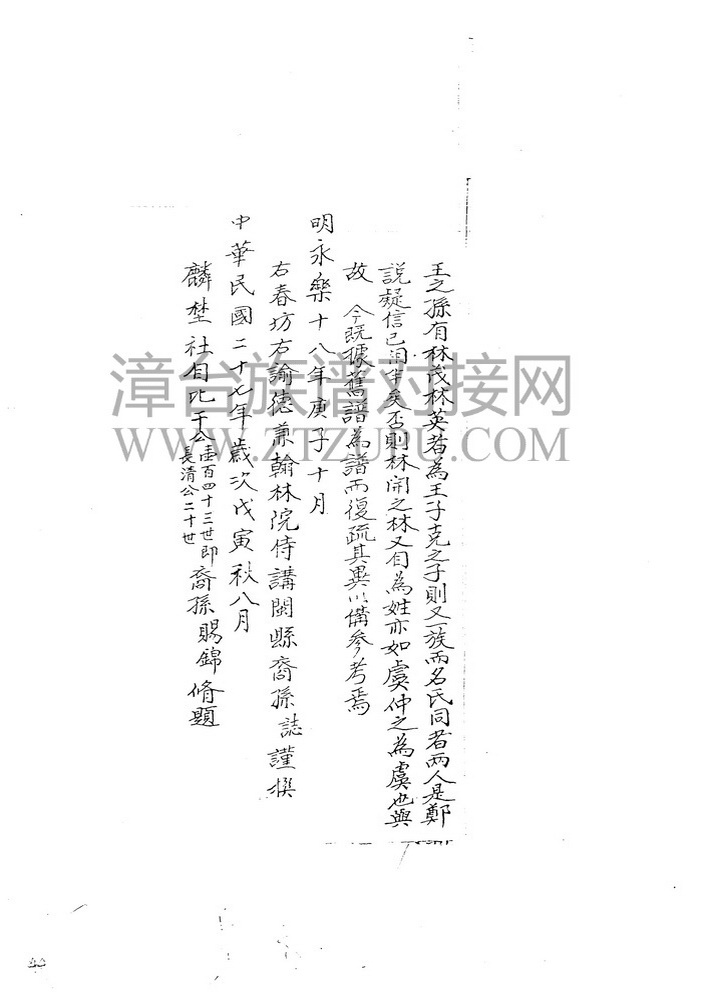 王之孫有林茂林英若為王子克之子則又一族而名氏同者兩人是鄭
說疑信已泪半矣否則林開之林又自為姓亦如虞仲之為虞也與
故 今既據舊譜為譜而復疏其異以備參考焉
明永樂十八年庚子十月
右春坊右諭德兼翰林院侍講閩縣裔孫誌謹撰
中華民國二十七年歲次戊寅秋八月
麟埜社自比干公壹百四十三世即長清公二十世裔孫賜錦脩題
漳台族谱对接网
WWW.ZTZUPU.COM